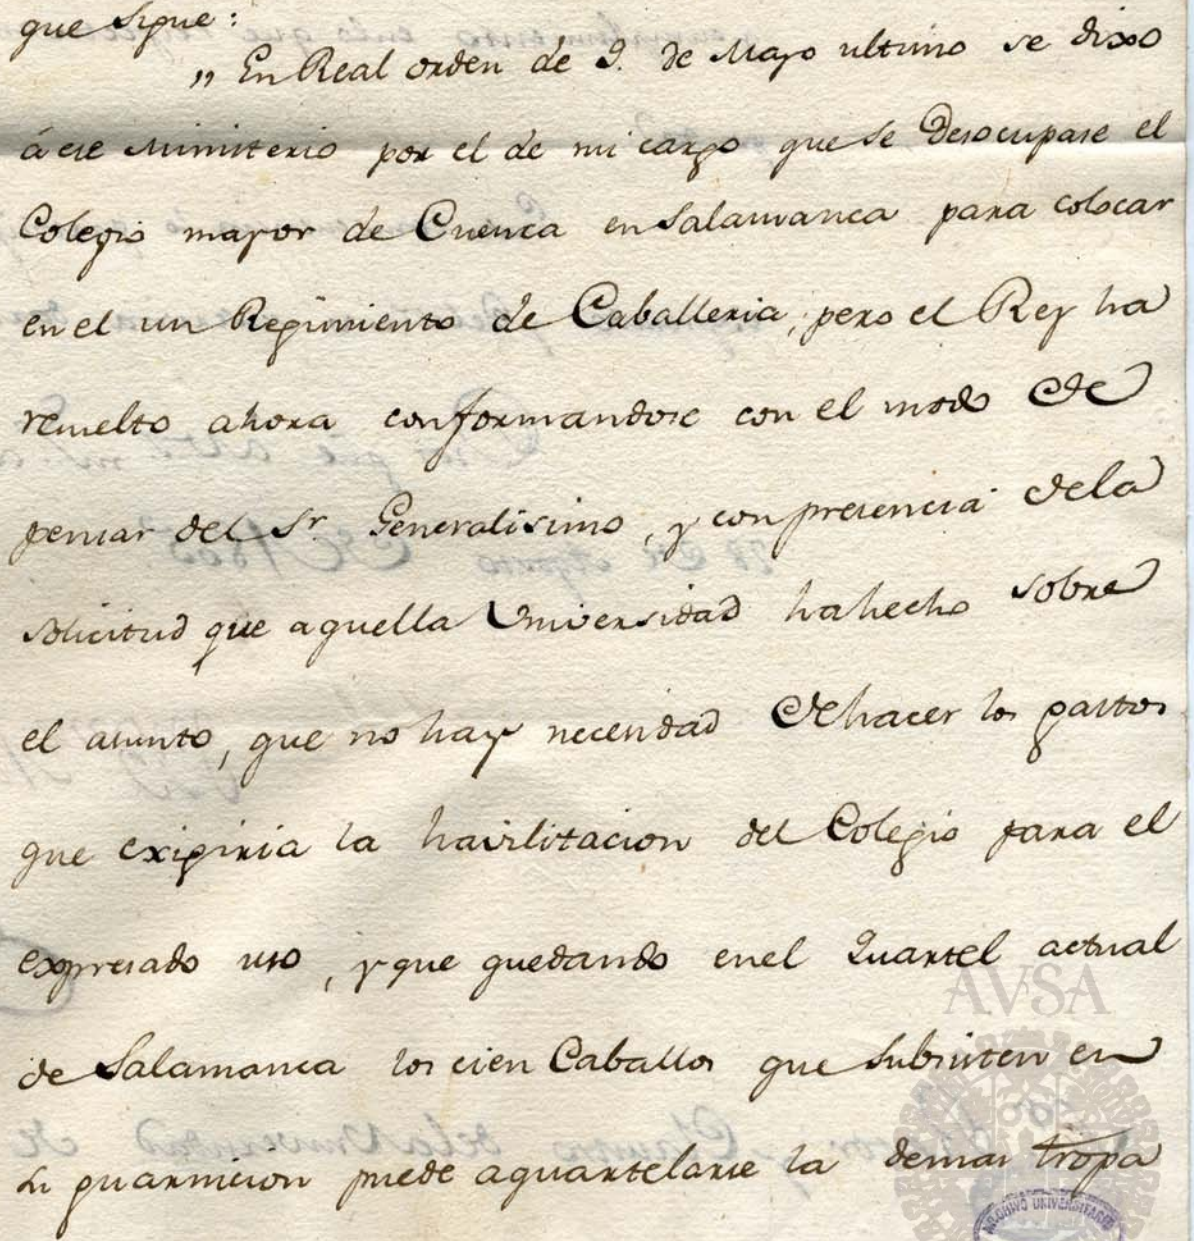 que sigue:
„ En Real orden de 9. de Mayo ultimo se dixo
á ese Ministerio por el de mi cargo que se desocupase el
Colegio mayor de Cuenca en Salamanca para colocar
en el un Regimiento de Caballeria; pero el Rey ha
resuelto ahora conformandose con el modo de
pensar del Sr. Generalisimo, y con presencia de la
solicitud que aquella Universidad ha hecho sobre
el asunto, que no hay necesidad de hacer los gastos
que exigiria la havilitacion del Colegio para el
expresado uso, y que quedando en el Quartel actual
de Salamanca los cien Caballos que subsisten en
su guarnicion puede aquartelarse la demas tropa
AVSA
ARCHIVO UNIVERSITARIO